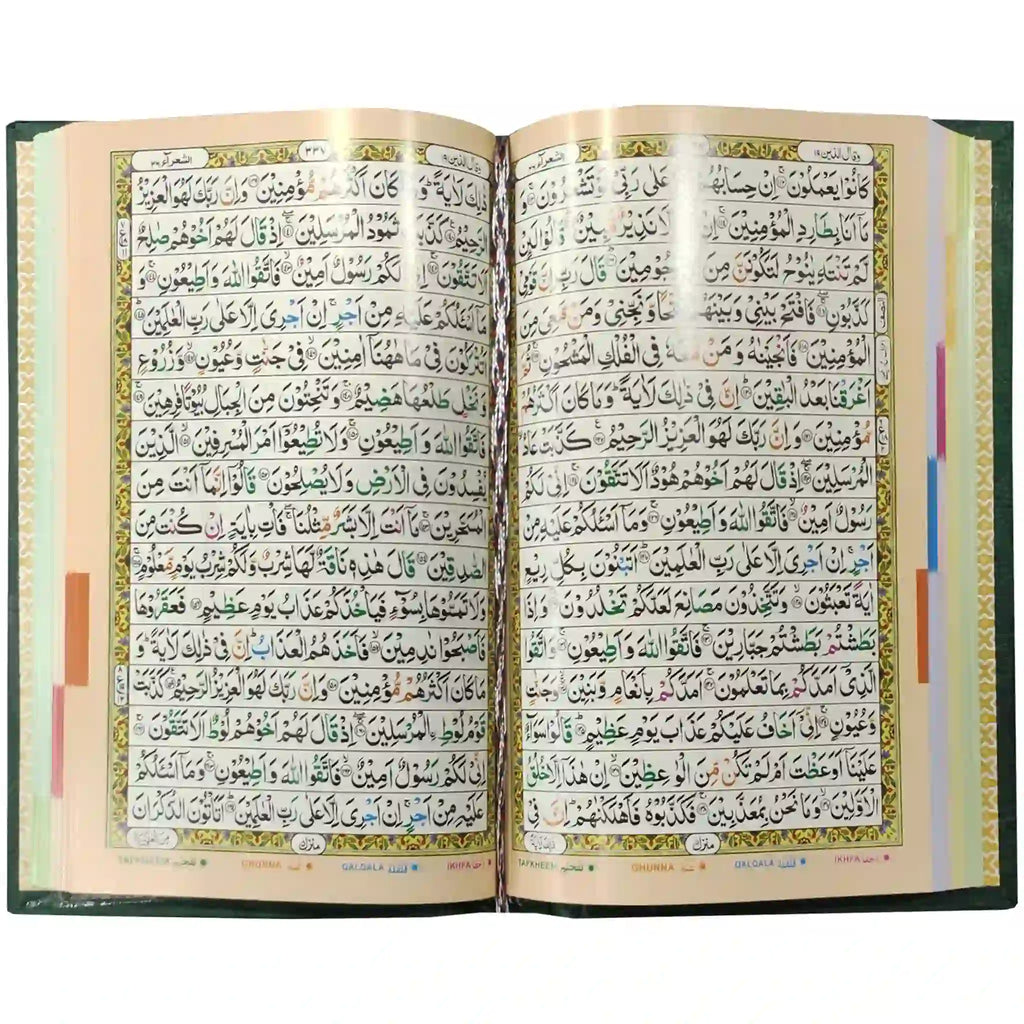 وقال الذين ١٩
الشعرآء ٢٦
كَانُوْا يَعْمَلُوْنَ ۝١١٢ اِنْ عَلٰى رَبِّيْ تَشْعُرُوْنَ ۝١١٣ وَ
مَاۤ اَنَا بِطَارِدِ الْمُؤْمِنِيْنَ ۝١١٤ اِنْ نَذِيْرٌ مُّبِيْنٌ ۝١١٥ قَالُوْا لَئِنْ
لَّمْ تَنْتَهِ يٰنُوْحُ لَتَكُوْنَنَّ مِنَ ۝١١٦ قَالَ رَبِّ اِنَّ قَوْمِيْ
كَذَّبُوْنِ ۝١١٧ فَافْتَحْ بَيْنِيْ وَبَيْنَهُمْ فَتْحًا وَّنَجِّنِيْ وَمَنْ مَّعِيَ مِنَ
الْمُؤْمِنِيْنَ ۝١١٨ فَاَنْجَيْنٰهُ وَمَنْ مَّعَهٗ فِي الْفُلْكِ الْمَشْحُوْنِ ۝١١٩ ثُمَّ
اَغْرَقْنَا بَعْدُ الْبٰقِيْنَ ۝١٢٠ اِنَّ فِيْ ذٰلِكَ لَاٰيَةً ؕ وَمَا كَانَ اَكْثَرُهُمْ
مُّؤْمِنِيْنَ ۝١٢١ وَاِنَّ رَبَّكَ لَهُوَ الْعَزِيْزُ الرَّحِيْمُ ۝١٢٢ كَذَّبَتْ عَادُ
الْمُرْسَلِيْنَ ۝١٢٣ اِذْ قَالَ لَهُمْ اَخُوْهُمْ هُوْدٌ اَلَا تَتَّقُوْنَ ۝١٢٤ اِنِّيْ لَكُمْ
رَسُوْلٌ اَمِيْنٌ ۝١٢٥ فَاتَّقُوا اللّٰهَ وَاَطِيْعُوْنِ ۝١٢٦ وَمَاۤ اَسْئَلُكُمْ عَلَيْهِ مِنْ
اَجْرٍ ۚ اِنْ اَجْرِيَ اِلَّا عَلٰى رَبِّ الْعٰلَمِيْنَ ۝١٢٧ اَتَبْنُوْنَ بِكُلِّ رِيْعٍ
اٰيَةً تَعْبَثُوْنَ ۝١٢٨ وَتَتَّخِذُوْنَ مَصَانِعَ لَعَلَّكُمْ تَخْلُدُوْنَ ۝١٢٩ وَاِذَا
بَطَشْتُمْ بَطَشْتُمْ جَبَّارِيْنَ ۝١٣٠ فَاتَّقُوا اللّٰهَ وَاَطِيْعُوْنِ ۝١٣١ وَاتَّقُوا
الَّذِيْۤ اَمَدَّكُمْ بِمَا تَعْلَمُوْنَ ۝١٣٢ اَمَدَّكُمْ بِاَنْعَامٍ وَّبَنِيْنَ ۝١٣٣ وَجَنّٰتٍ
وَّعُيُوْنٍ ۝١٣٤ اِنِّيْۤ اَخَافُ عَلَيْكُمْ عَذَابَ يَوْمٍ عَظِيْمٍ ۝١٣٥ قَالُوْا سَوَآءٌ
عَلَيْنَاۤ اَوَعَظْتَ اَمْ لَمْ تَكُنْ مِّنَ الْوٰعِظِيْنَ ۝١٣٦ اِنْ هٰذَاۤ اِلَّا خُلُقُ
الْاَوَّلِيْنَ ۝١٣٧ وَمَا نَحْنُ بِمُعَذَّبِيْنَ ۝١٣٨ فَكَذَّبُوْهُ فَاَهْلَكْنٰهُمْ ؕ اِنَّ فِيْ
ذٰلِكَ لَاٰيَةً
منزل
TAFKHEEM تفخيم GHUNNA غنه QALQALA قلقلة IKHFA اخفا
وقال الذين ١٩
٣٣٧
الشعرآء ٢٦
ذٰلِكَ لَاٰيَةً ؕ وَمَا كَانَ اَكْثَرُهُمْ مُّؤْمِنِيْنَ ۝١٣٩ وَاِنَّ رَبَّكَ لَهُوَ الْعَزِيْزُ
الرَّحِيْمُ ۝١٤٠ كَذَّبَتْ ثَمُوْدُ الْمُرْسَلِيْنَ ۝١٤١ اِذْ قَالَ لَهُمْ اَخُوْهُمْ صٰلِحٌ
اَلَا تَتَّقُوْنَ ۝١٤٢ اِنِّيْ لَكُمْ رَسُوْلٌ اَمِيْنٌ ۝١٤٣ فَاتَّقُوا اللّٰهَ وَاَطِيْعُوْنِ ۝١٤٤ وَ
مَاۤ اَسْئَلُكُمْ عَلَيْهِ مِنْ اَجْرٍ ۚ اِنْ اَجْرِيَ اِلَّا عَلٰى رَبِّ الْعٰلَمِيْنَ ۝١٤٥
اَتُتْرَكُوْنَ فِيْ مَا هٰهُنَاۤ اٰمِنِيْنَ ۝١٤٦ فِيْ جَنّٰتٍ وَّعُيُوْنٍ ۝١٤٧ وَّزُرُوْعٍ
وَّنَخْلٍ طَلْعُهَا هَضِيْمٌ ۝١٤٨ وَتَنْحِتُوْنَ مِنَ الْجِبَالِ بُيُوْتًا فٰرِهِيْنَ ۝١٤٩
فَاتَّقُوا اللّٰهَ وَاَطِيْعُوْنِ ۝١٥٠ وَلَا تُطِيْعُوْۤا اَمْرَ الْمُسْرِفِيْنَ ۝١٥١ الَّذِيْنَ
يُفْسِدُوْنَ فِي الْاَرْضِ وَلَا يُصْلِحُوْنَ ۝١٥٢ قَالُوْۤا اِنَّمَاۤ اَنْتَ مِنَ
الْمُسَحَّرِيْنَ ۝١٥٣ مَاۤ اَنْتَ اِلَّا بَشَرٌ مِّثْلُنَا ۖ فَاْتِ بِاٰيَةٍ اِنْ كُنْتَ مِنَ
الصّٰدِقِيْنَ ۝١٥٤ قَالَ هٰذِهٖ نَاقَةٌ لَّهَا شِرْبٌ وَّلَكُمْ شِرْبُ يَوْمٍ مَّعْلُوْمٍ ۝١٥٥
وَلَا تَمَسُّوْهَا بِسُوْٓءٍ فَيَاْخُذَكُمْ عَذَابُ يَوْمٍ عَظِيْمٍ ۝١٥٦ فَعَقَرُوْهَا
فَاَصْبَحُوْا نٰدِمِيْنَ ۝١٥٧ فَاَخَذَهُمُ الْعَذَابُ ؕ اِنَّ فِيْ ذٰلِكَ لَاٰيَةً ؕ وَ
مَا كَانَ اَكْثَرُهُمْ مُّؤْمِنِيْنَ ۝١٥٨ وَاِنَّ رَبَّكَ لَهُوَ الْعَزِيْزُ الرَّحِيْمُ ۝١٥٩ كَذَّبَتْ
قَوْمُ لُوْطِ اۨلْمُرْسَلِيْنَ ۝١٦٠ اِذْ قَالَ لَهُمْ اَخُوْهُمْ لُوْطٌ اَلَا تَتَّقُوْنَ ۝١٦١
اِنِّيْ لَكُمْ رَسُوْلٌ اَمِيْنٌ ۝١٦٢ فَاتَّقُوا اللّٰهَ وَاَطِيْعُوْنِ ۝١٦٣ وَمَاۤ اَسْئَلُكُمْ
عَلَيْهِ مِنْ اَجْرٍ ۚ اِنْ اَجْرِيَ اِلَّا عَلٰى رَبِّ الْعٰلَمِيْنَ ۝١٦٤ اَتَاْتُوْنَ الذُّكْرَانَ
منزل
مِنَ الْعٰلَمِيْنَ
TAFKHEEM تفخيم GHUNNA غنه QALQALA قلقلة IKHFA اخفا